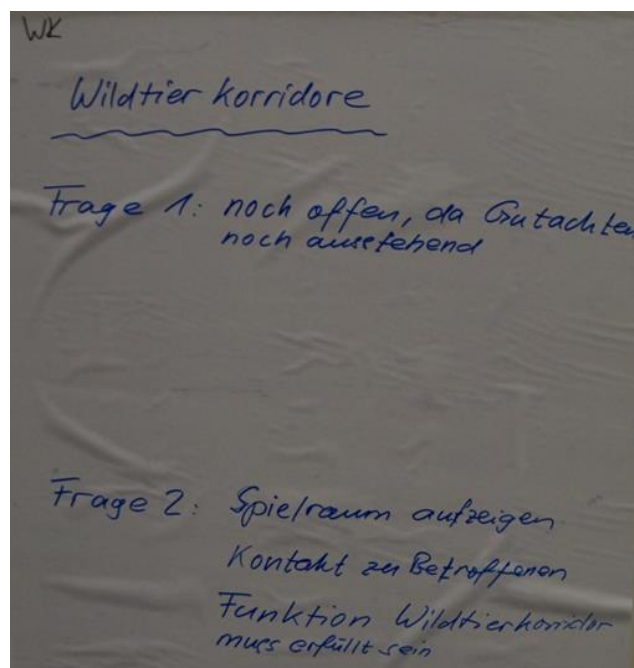 WK
Wildtier korridore
Frage 1: noch offen, da Gutachten
noch ausstehend
Frage 2: Spielraum aufzeigen
Kontakt zu Betroffenen
Funktion Wildtierkorridor
muss erfüllt sein